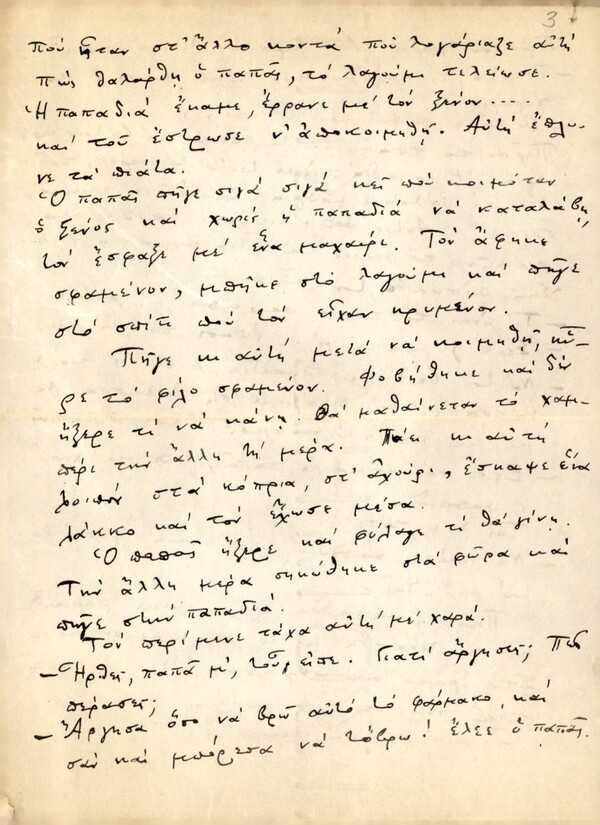 3
ποὺ ἦταν στ' ἄλλο κοντά ποὺ λογάριαζε αὐτή
πὼς θαλάρθη ὁ παπᾶς, τὸ λαγούμι τελείωσε.
Ἡ παπαδιά ἔκαμε, ἔρρανε μέ τὸν ξένον....
καί τοῦ ἔστρωσε ν' ἀποκοιμηθῇ. Αὐτή ἔπλυ-
νε τά πιάτα.
Ὁ παπᾶς πῆγε σιγά σιγά κεῖ ποὺ κοιμόταν
ὁ ξένος καί χωρίς ἡ παπαδιά νά καταλάβῃ,
τὸν ἔσφαξε μέ ἕνα μαχαίρι. Τὸν ἄφηκε
σφαμένον, μπῆκε στὸ λαγούμι καί πῆγε
στὸ σπίτι ποὺ τὸν εἶχαν κρυμένον.
Πῆγε κι αὐτή μετά νά κοιμηθῇ, ηὗ-
ρε τὸ φίλο σφαμένον. Φοβήθηκε καί δὲν
ἤξερε τί νά κάνῃ. Θά μαθαίνεταν τὸ χαμ-
πέρι τὴν ἄλλη τὴ μέρα. Πάει κι αὐτή
λοιπόν στά κόπρια, στ' ἀχούρι, ἔσκαψε ἕνα
λάκκο καί τὸν ἔχωσε μέσα.
Ὁ παπᾶς ἤξερε καί φύλαγε τί θά γίνῃ.
Τὴν ἄλλη μερά σηκώθηκε στά φῶρα καί
πῆγε στὴν παπαδιά.
Τὸν περίμενε τάχα αὐτή μέ χαρά.
— Ἦρθες, παπᾶ μ', τοῦ εἶπε. Γιατί ἄργησες; Πῶς
πέρασες;
— Ἄργησα ὅσο νά βρῶ αὐτὸ τὸ φάρμακο, καί
σάν καί μπόρεσα νά τὄβρω! ἔλεε ὁ παπᾶς.